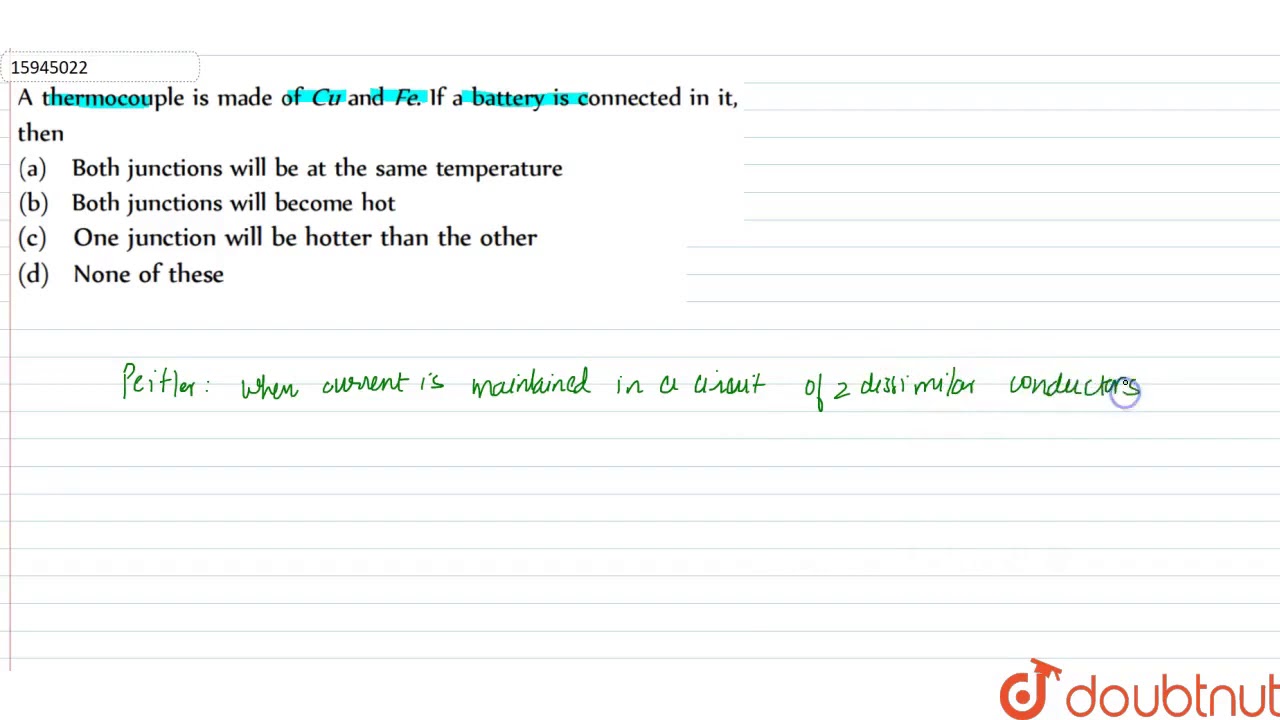 15945022
A thermocouple is made of Cu and Fe. If a battery is connected in it,
then
(a) Both junctions will be at the same temperature
(b) Both junctions will become hot
(c) One junction will be hotter than the other
(d) None of these
Peitler: when current is maintained in a circuit of 2 dissimilar conductors
doubtnut